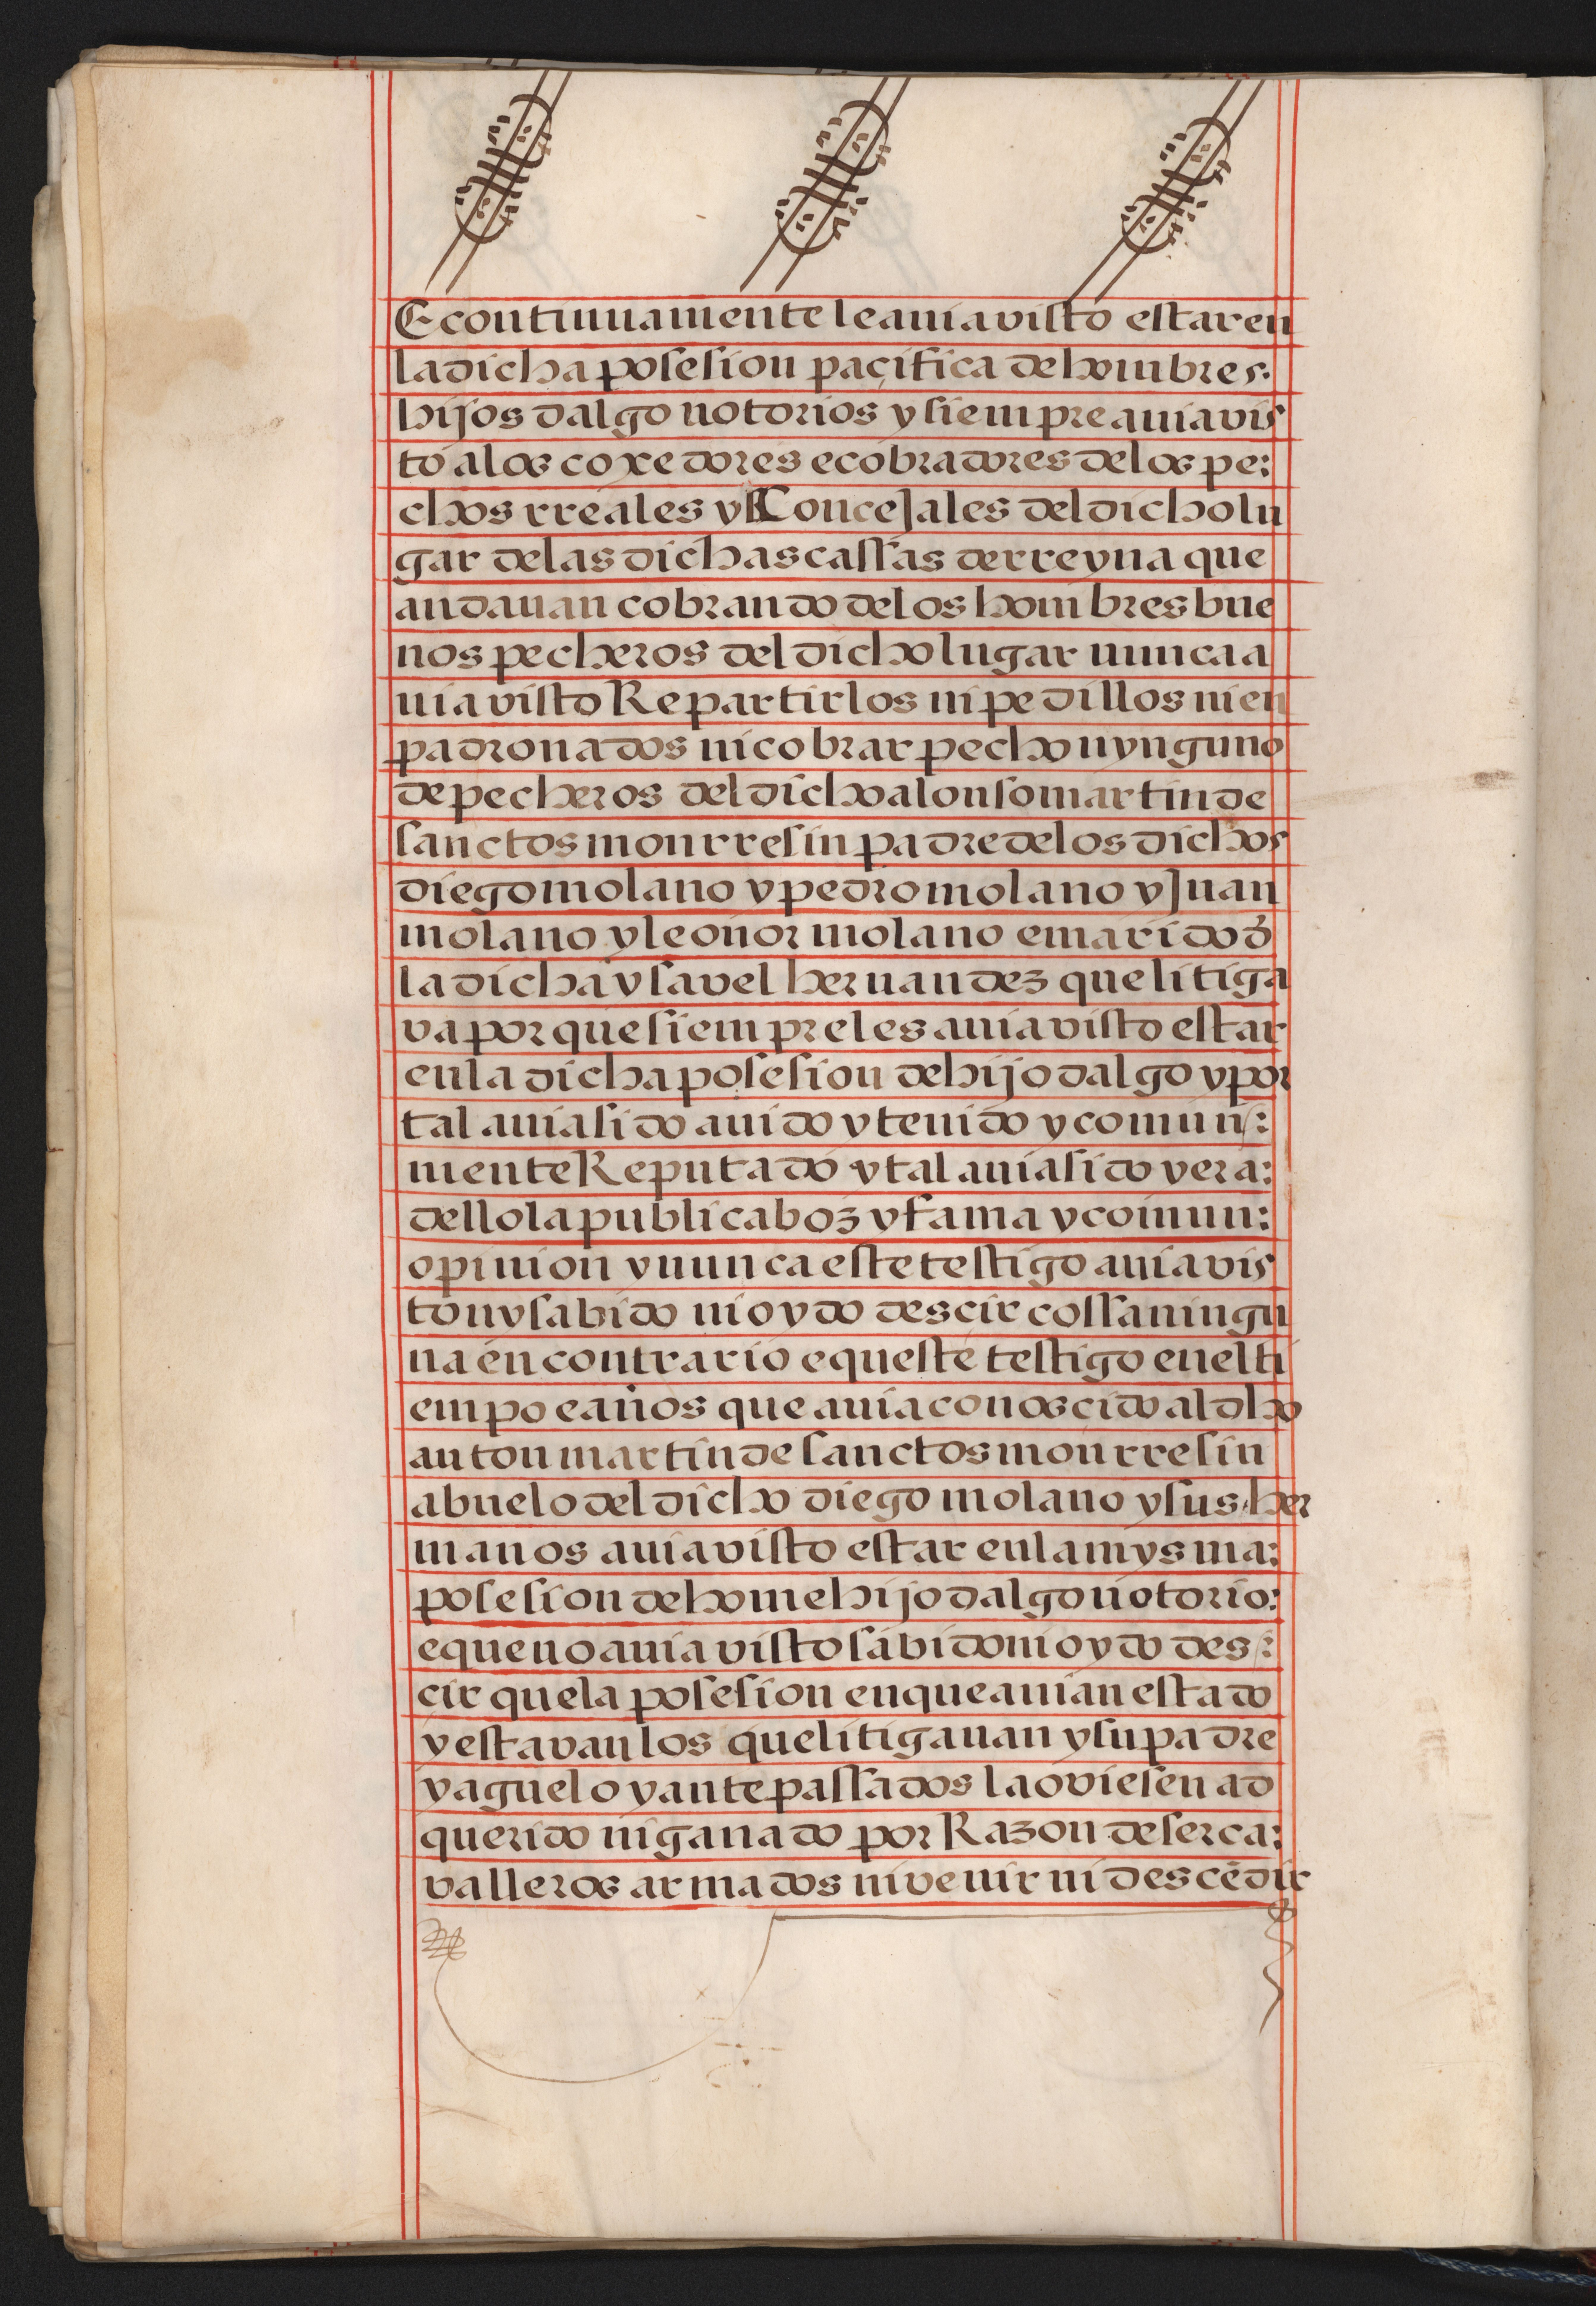 E continuamente le auia visto estar en
la dicha posesion paçifica de hombres.
hijos dalgo notorios y siempre auia vis
to a los coxedores e cobradores de los pe:
chos rreales y Concejales del dicho lu
gar de las dichas cassas de rreyna que
andauan cobrando de los hombres bue
nos pecheros del dicho lugar nunca a
uia visto Repartirlos ni pedillos ni en
padronados ni cobrar pecho nynguno
de pecheros del dicho alonso martin de
sanctos monrresin padre de los dichos
diego molano y pedro molano y Juan
molano y leonor molano e marido d̄
la dicha ysavel hernandez que litiga
va porque siempre les auia visto estar
en la dicha posesion de hijo dalgo y por
tal auia sido auido y tenido y comun:
mente Reputado y tal auia sido y era:
dello la publica boz y fama y comun:
opinion y nunca este testigo auia vis
to ny sabido ni oydo descir cossa ningu
na en contrario e queste testigo en el ti
empo e años que auia conoscido al dho
anton martin de sanctos monrresin
abuelo del dicho diego molano y sus her
manos auia visto estar en la mysma:
posesion de home hijo dalgo notorio:
e que no auia visto sabido ni oydo des:
cir que la posesion en que auian estado
y estavan los que litigauan y su padre
y aguelo y antepassados la oviesen ad
querido ni ganado por Razon de ser ca:
valleros armados ni venir ni descēdir